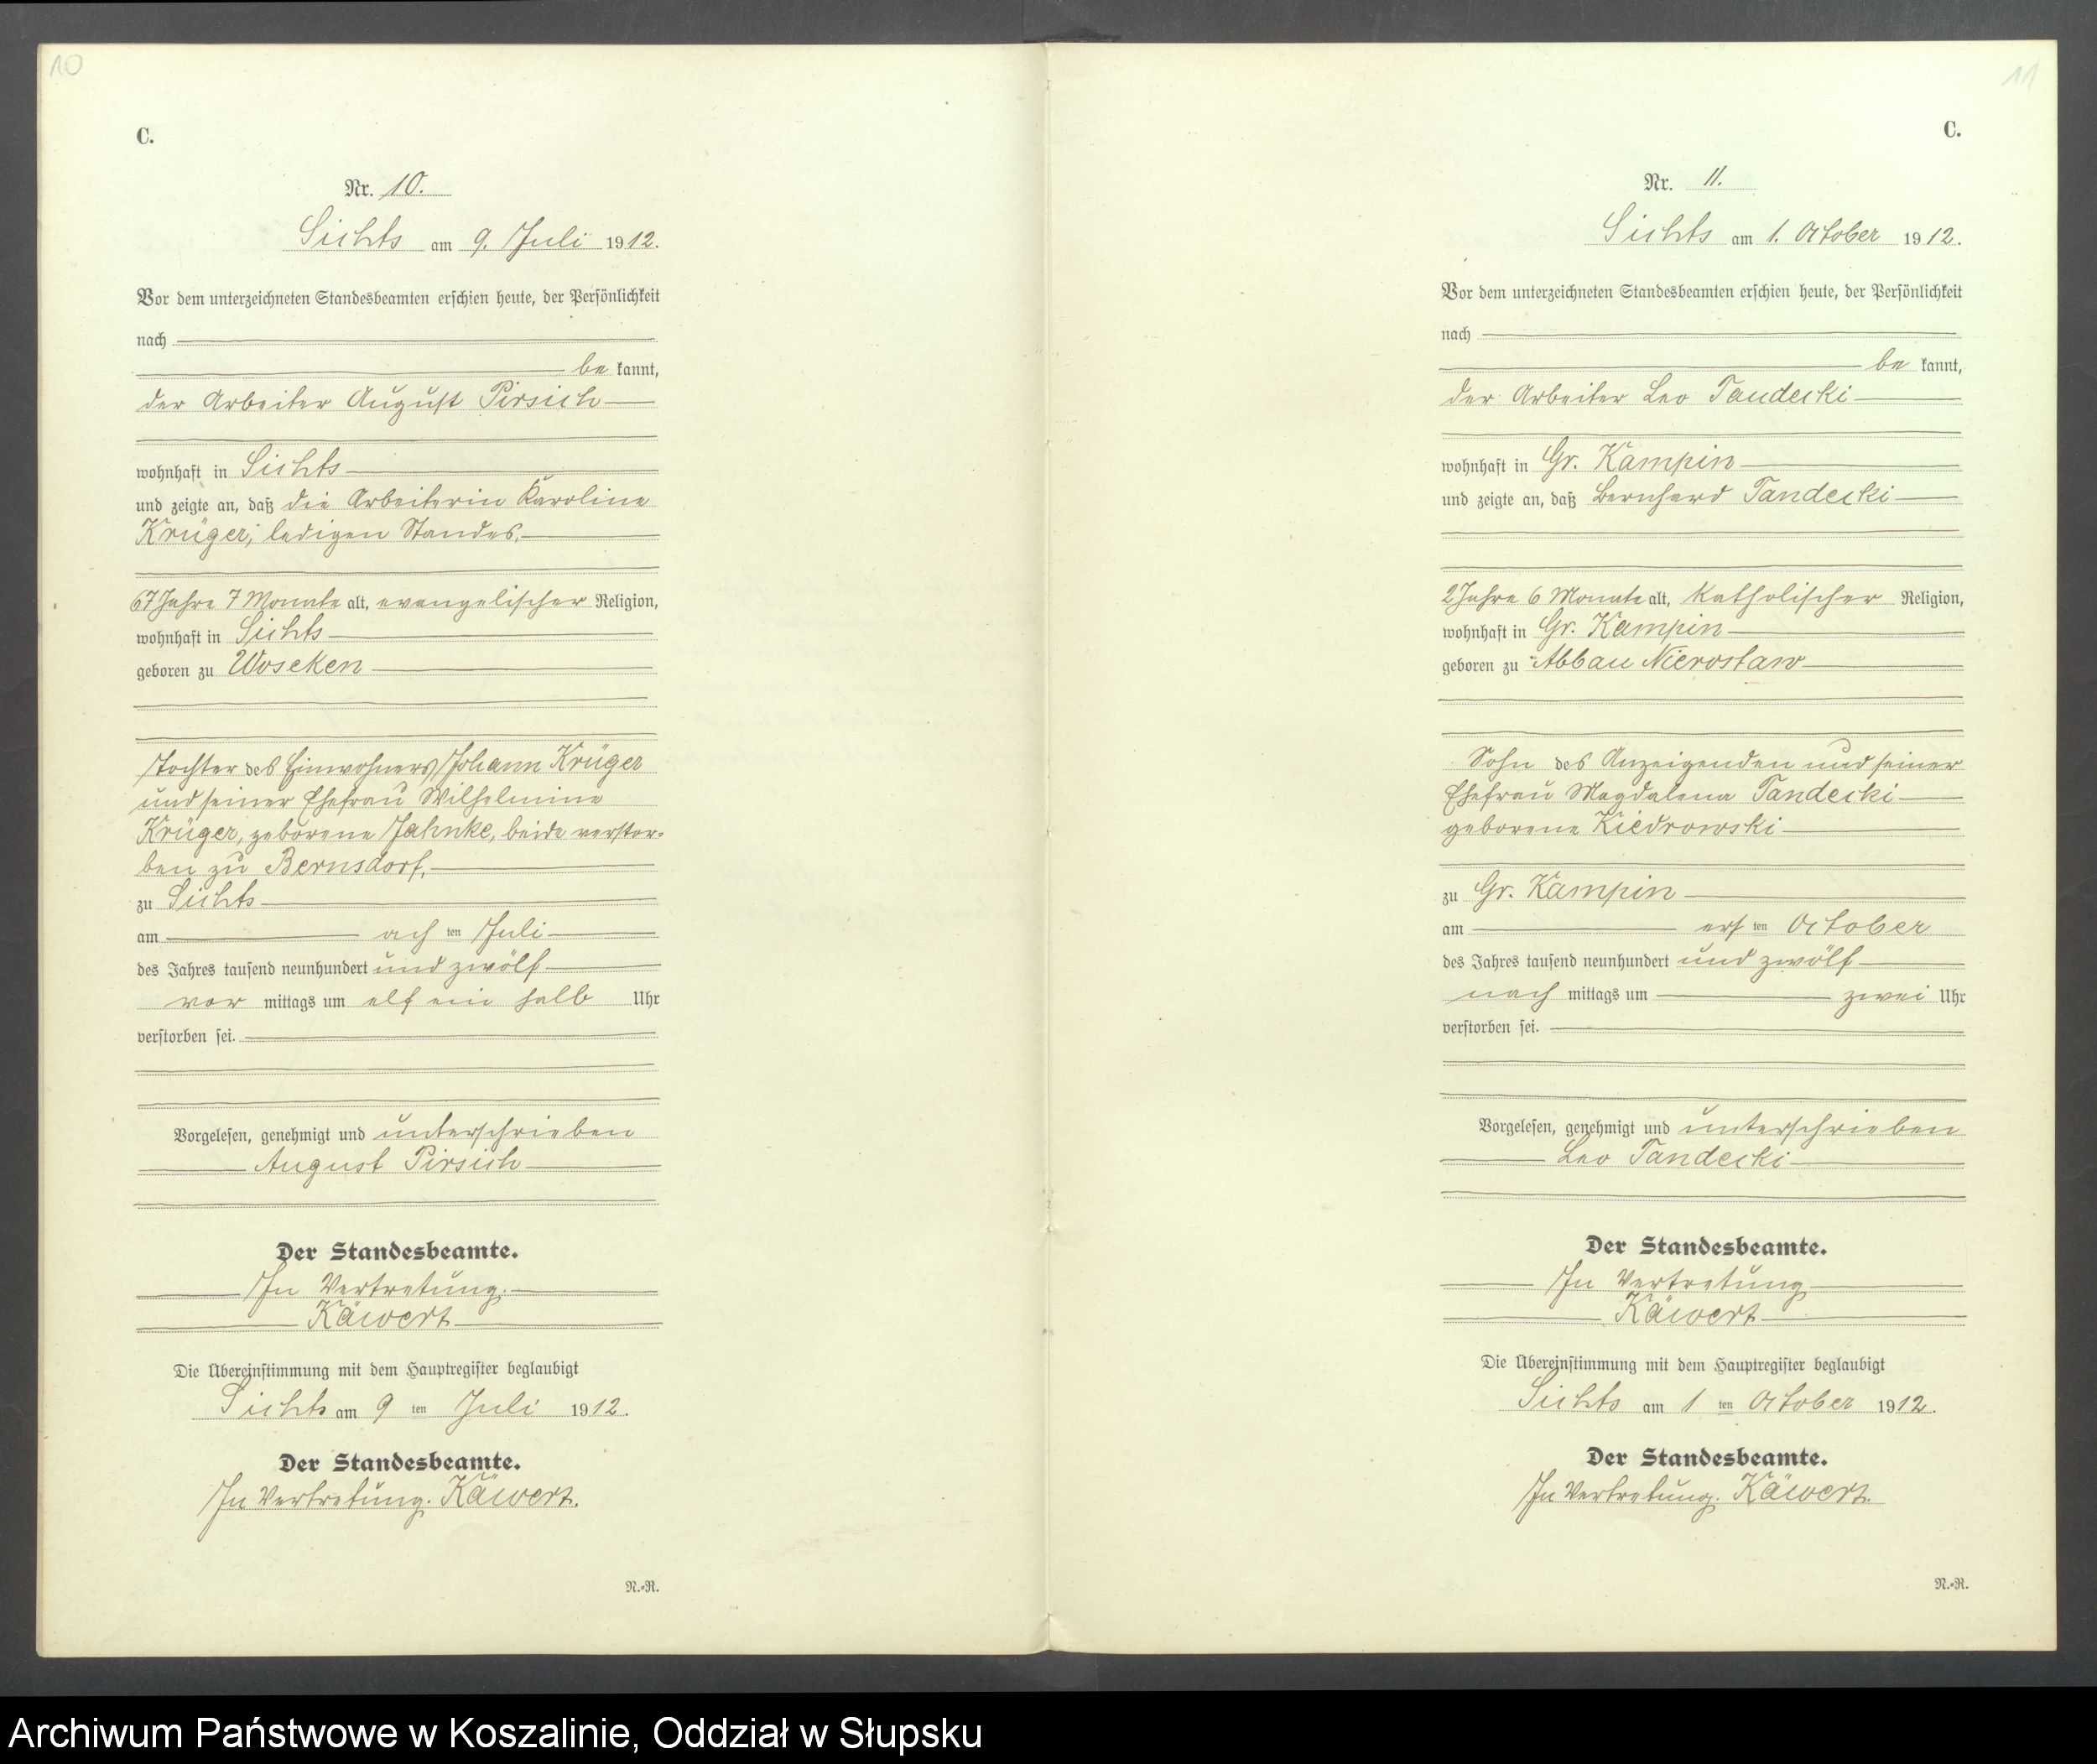 10
C.
Nr. 10.
Sichts am 9. Juli 1912.
Vor dem unterzeichneten Standesbeamten erschien heute, der Persönlichkeit
nach
be kannt,
der Arbeiter August Pirsich
wohnhaft in Sichts
und zeigte an, daß die Arbeiterin Karoline
Krüger, ledigen Standes,
67 Jahre 7 Monate alt, evangelischer Religion,
wohnhaft in Sichts
geboren zu Woseken
Tochter des Einwohners Johann Krüger
und seiner Ehefrau Wilhelmine
Krüger, geborene Jahnke, beide verstor-
ben zu Bernsdorf,
zu Sichts
am ach ten Juli
des Jahres tausend neunhundert und zwölf
vor mittags um elf ein halb Uhr
verstorben sei.
Vorgelesen, genehmigt und unterschrieben
August Pirsich
Der Standesbeamte.
In Vertretung.
Käwert
Die Übereinstimmung mit dem Hauptregister beglaubigt
Sichts am 9 ten Juli 1912.
Der Standesbeamte.
In Vertretung. Käwert.
N.-R.
11
C.
Nr. 11.
Sichts am 1. October 1912.
Vor dem unterzeichneten Standesbeamten erschien heute, der Persönlichkeit
nach
be kannt,
der Arbeiter Leo Tandecki
wohnhaft in Gr. Kampin
und zeigte an, daß Bernhard Tandecki
2 Jahre 6 Monate alt, katholischer Religion,
wohnhaft in Gr. Kampin
geboren zu Abbau Nierostaw
Sohn des Anzeigenden und seiner
Ehefrau Magdalena Tandecki
geborene Kiedrowski
zu Gr. Kampin
am ers ten October
des Jahres tausend neunhundert und zwölf
nach mittags um zwei Uhr
verstorben sei.
Vorgelesen, genehmigt und unterschrieben
Leo Tandecki
Der Standesbeamte.
In Vertretung
Käwert
Die Übereinstimmung mit dem Hauptregister beglaubigt
Sichts am 1 ten October 1912.
Der Standesbeamte.
In Vertretung. Käwert.
N.-R.
Archiwum Państwowe w Koszalinie, Oddział w Słupsku